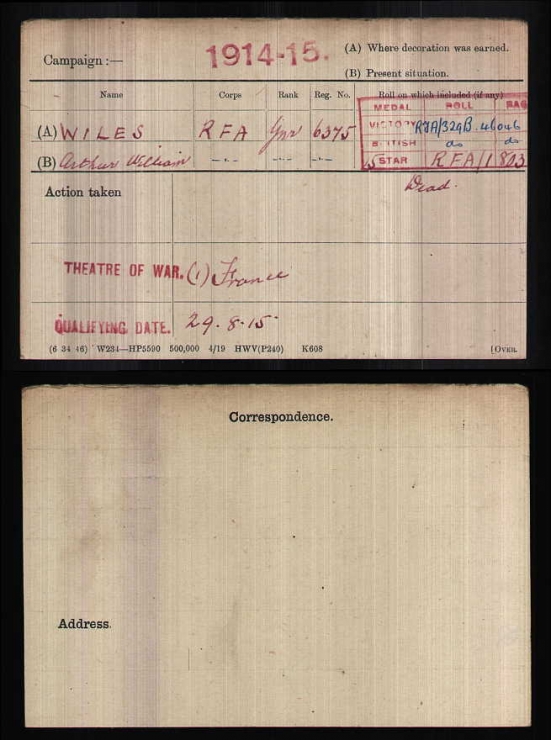 Campaign :—
1914-15.
(A) Where decoration was earned.
(B) Present situation.
Name Corps Rank Reg. No. Roll on which included (if any)
MEDAL ROLL PAG
(A) WILES RFA Gnr 6375
VICTORY RFA/329B. 46046
BRITISH do do
(B) Arthur William —·— —·— —·—
15 STAR RFA/1 803
Action taken
Dead.
THEATRE OF WAR. (1) France
QUALIFYING DATE. 29.8.15.
(6 34 46) W234—HP5590 500,000 4/19 HWV(P240) K608 [OVER.
Correspondence.
Address.